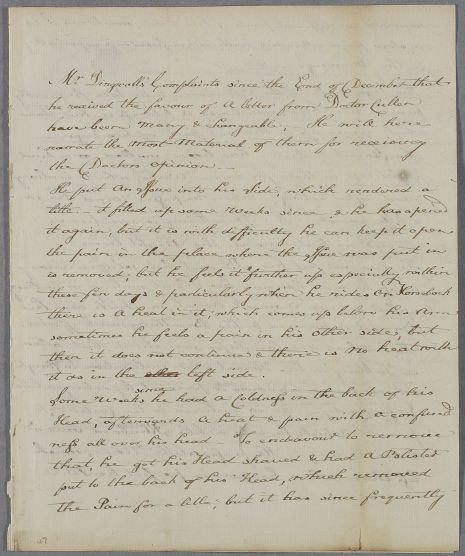 Mr Dingwall's Complaints since the End of December that
he received the favour of a letter from Doctor Cullen
have been many & changeable, He will here
narrate the most Material of them for receiving
the Doctors opinion —
He put An Issue into his side, which rendered a
little It filled up some weeks since, & he has opened
it again, but it is with difficulty he can keep it open
the pain in the place where the Issue was put in
is removed but he feels it further up especially within
these few days & particularly when he rides On Horseback
there is a heat in it, which comes up below his Arm
sometimes he feels a pain in his other side, but
then it does not continue & there is no heat with
it as in the left side.
Some weeks since he had a Coldness in the back of his
Head, afterwards a heat & pain with a confused
ness all over his head – To endeavour to remove
that, he got his Head shaved & had a Blister
put to the back of his Head, which removed
the Pain for a little, but it has since frequently